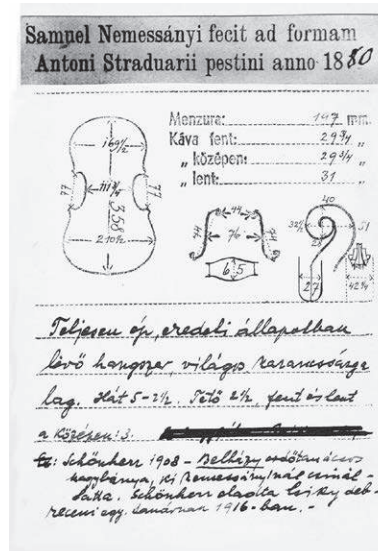 Samuel Nemessányi fecit ad formam
Antoni Straduarii pestini anno 1880
Menzura: 197 mm.
Káva fent: 29 3/4 „
„ középen: 29 3/4 „
„ lent: 31 „
169 1/2
77
111 3/4
77
358
210 1/2
44
74
76
74
6 5
40
51
27
42 1/2
Teljesen ép, eredeti állapotban
lévő hangszer, világos narancssárga
lag. Hát 5-2 1/2. Tető 2 1/2, fent és lent
a középen: 3.
Schönherr 1908 - Bellázy erdőtanácsos
nagybánya, ki Nemessányinál csinál-
tatta. Schönherr eladta Csiky deb-
receni egy. tanárnak 1916-ban. -